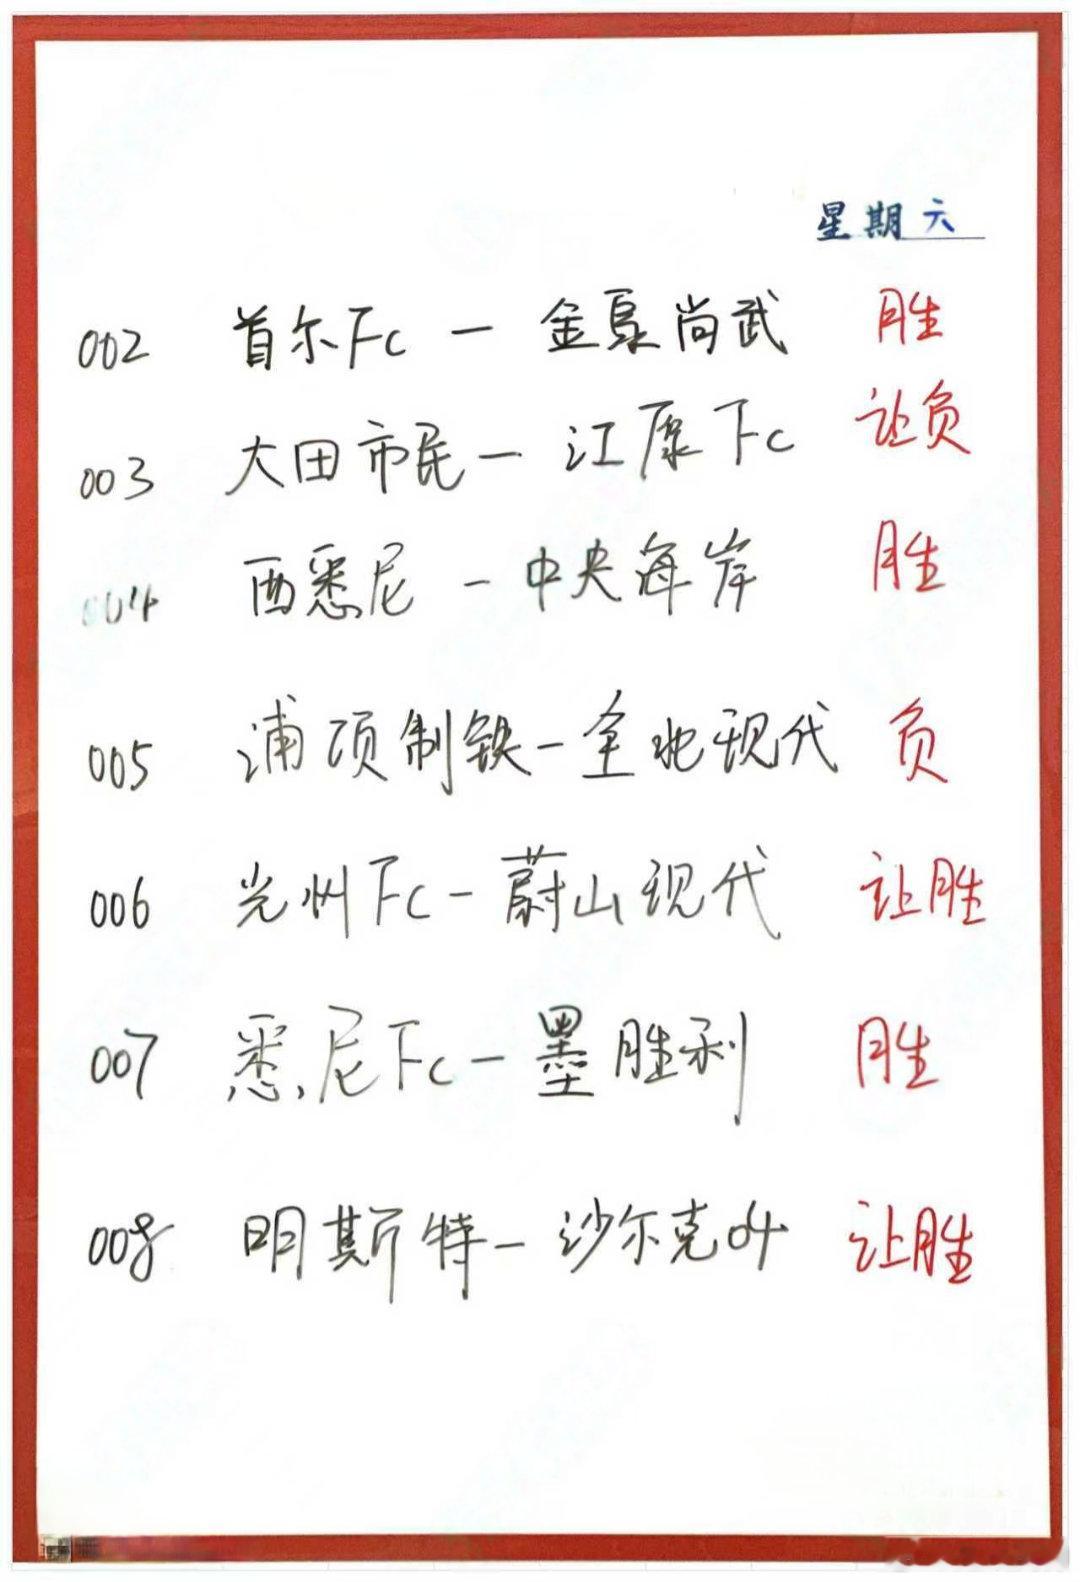 星期六
002 首尔Fc — 金泉尚武 胜
003 大田市民 — 江原Fc 让负
004 西悉尼 — 中央海岸 胜
005 浦项制铁 — 全北现代 负
006 光州Fc — 蔚山现代 让胜
007 悉尼Fc — 墨胜利 胜
008 明斯特 — 沙尔克04 让胜